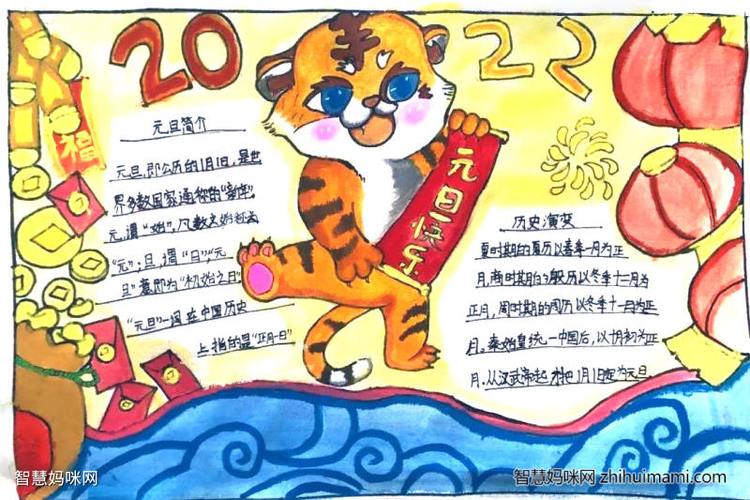 2022
福
元旦快乐
元旦简介
元旦,即公历的1月1日,是世
界多数国家通称的“新年”。
元,谓“始”,凡数之始称为
“元”;旦,谓“日”;“元
旦”意即为“初始之日”
“元旦”一词在中国历史
上指的是“正月一日”
历史演变
夏时期的夏历以春季一月为正
月,商时期的殷历以冬季十二月为
正月,周时期的周历以冬季十一月为正
月。秦始皇统一中国后,以十月初为正
月,从汉武帝起,才把1月1日定为元旦
智慧妈咪网
智慧妈咪网 zhihuimami.com